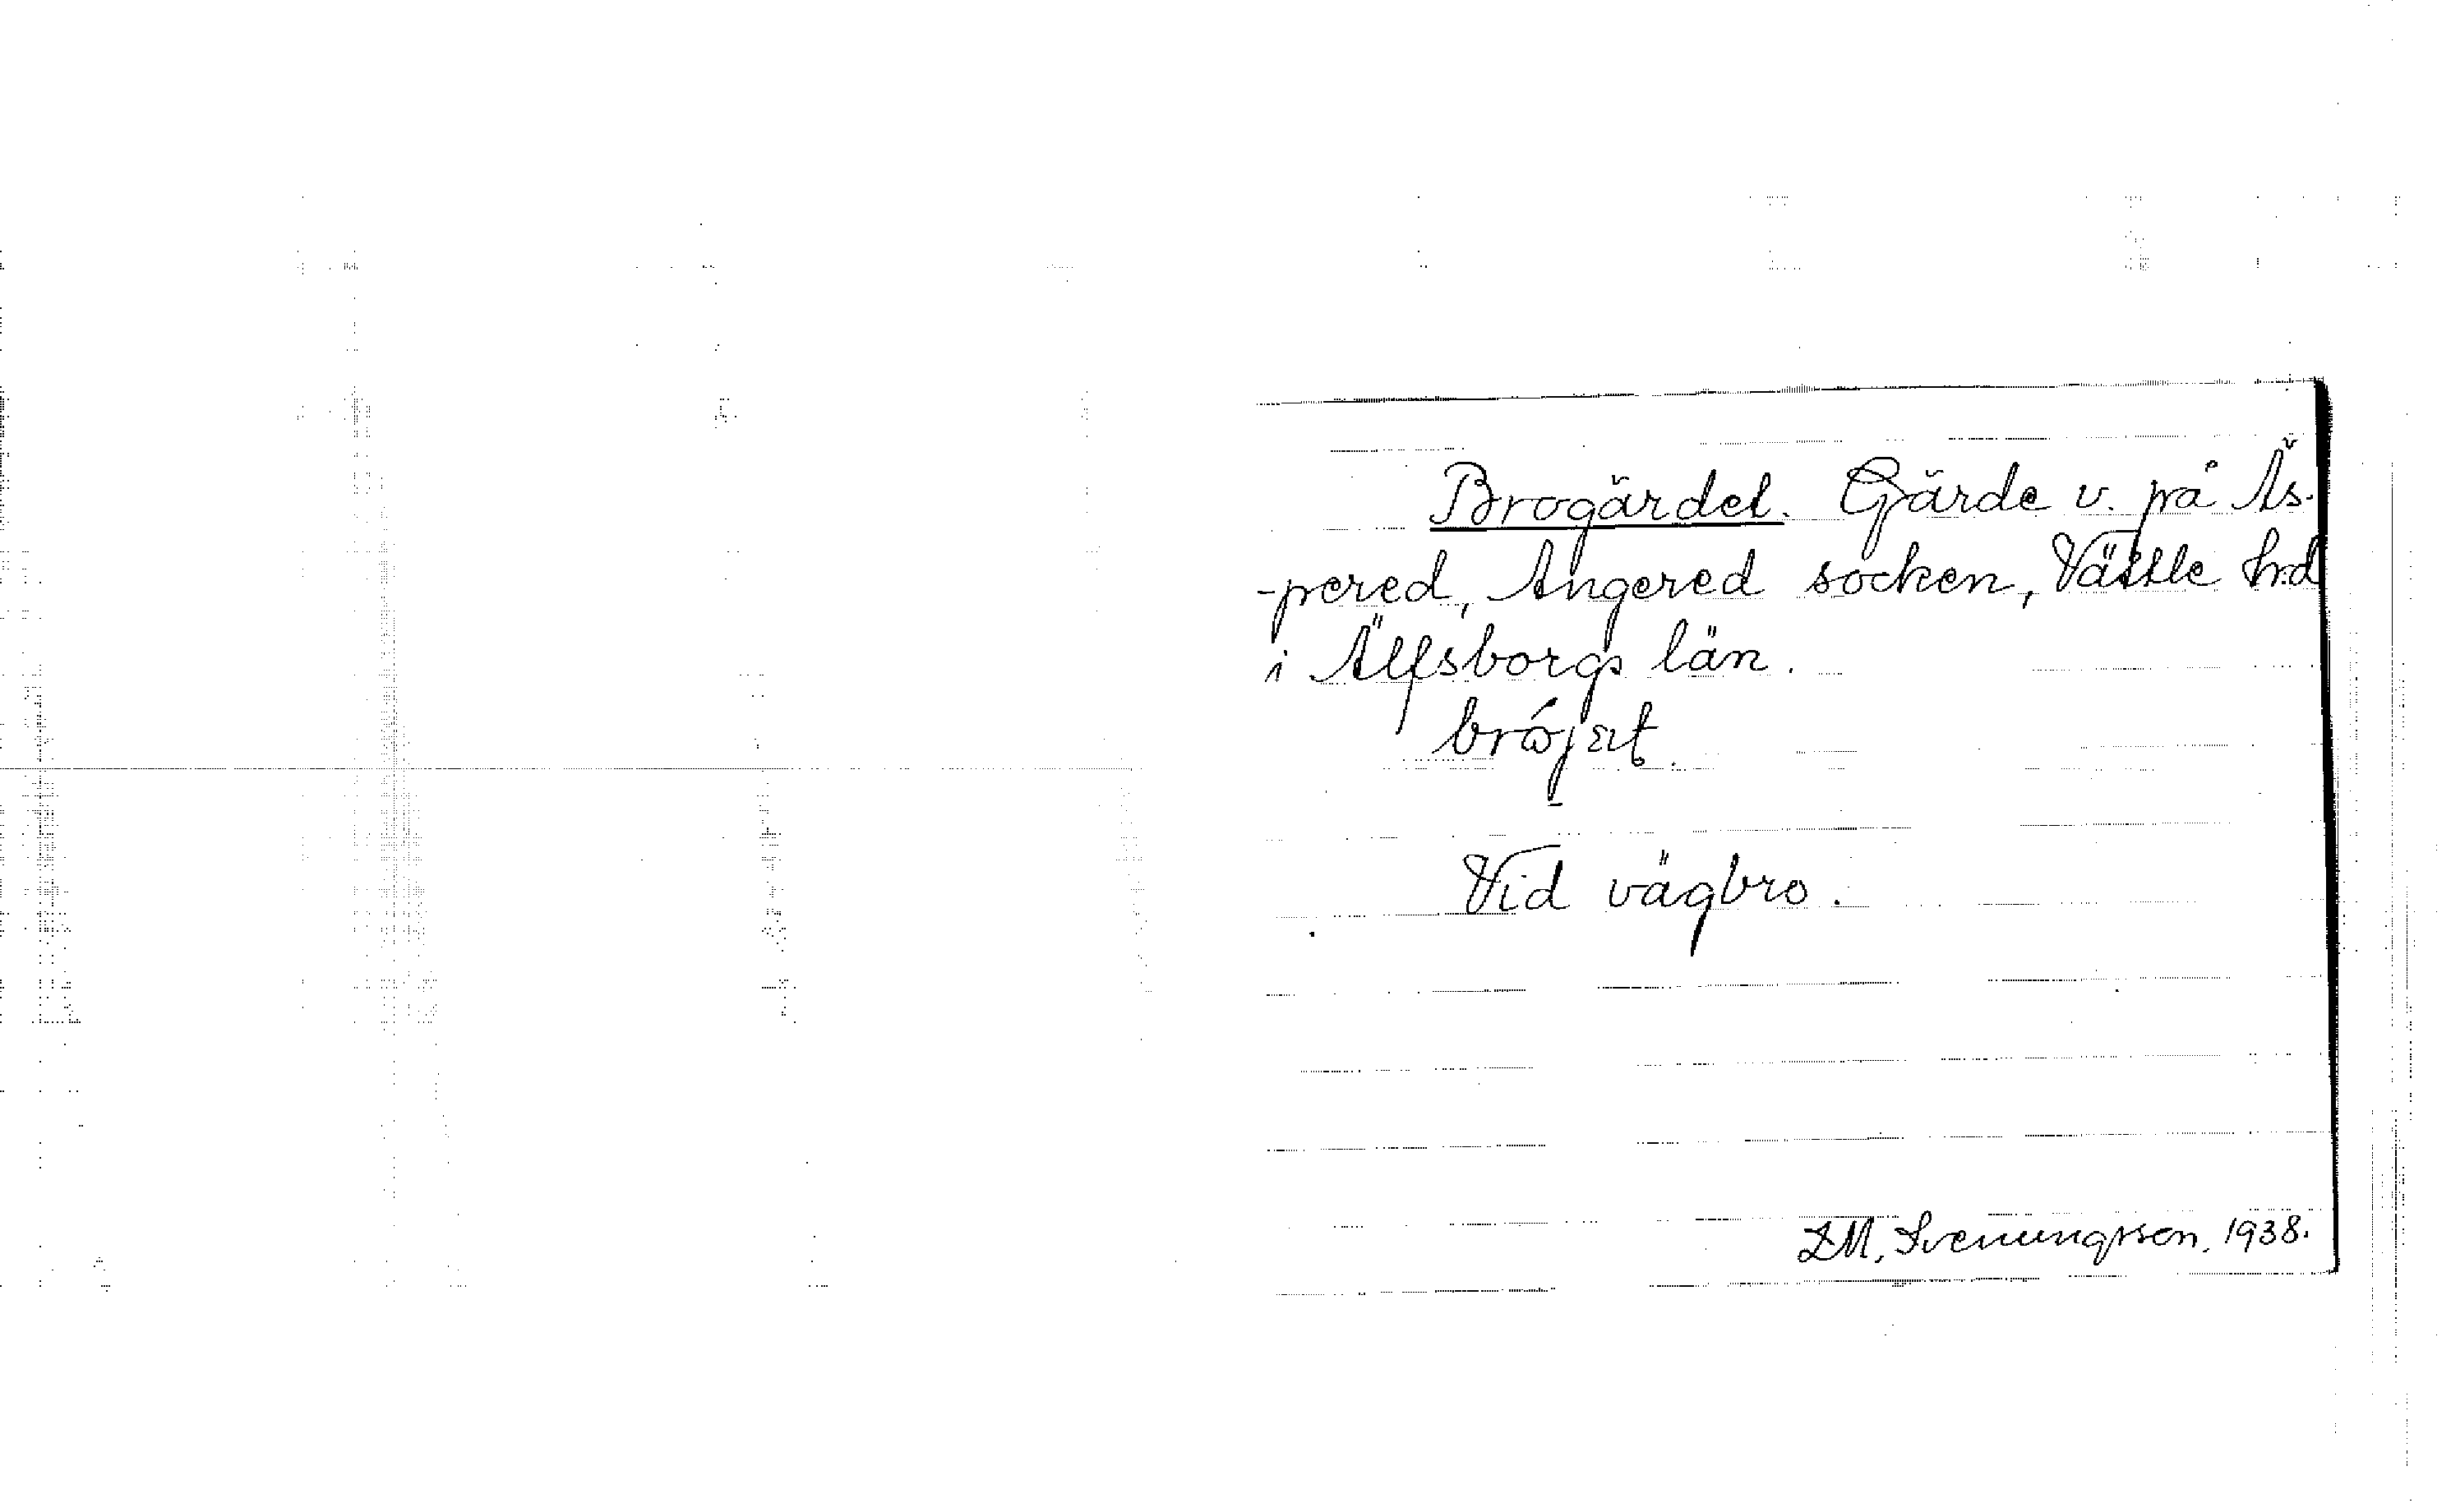 Brogärdet. Gärde v. på Äs-
-pered, Angered socken, Vättle hrd
i Älfsborgs län.
Vid vägbro.
I M. Svenungsson, 1938.